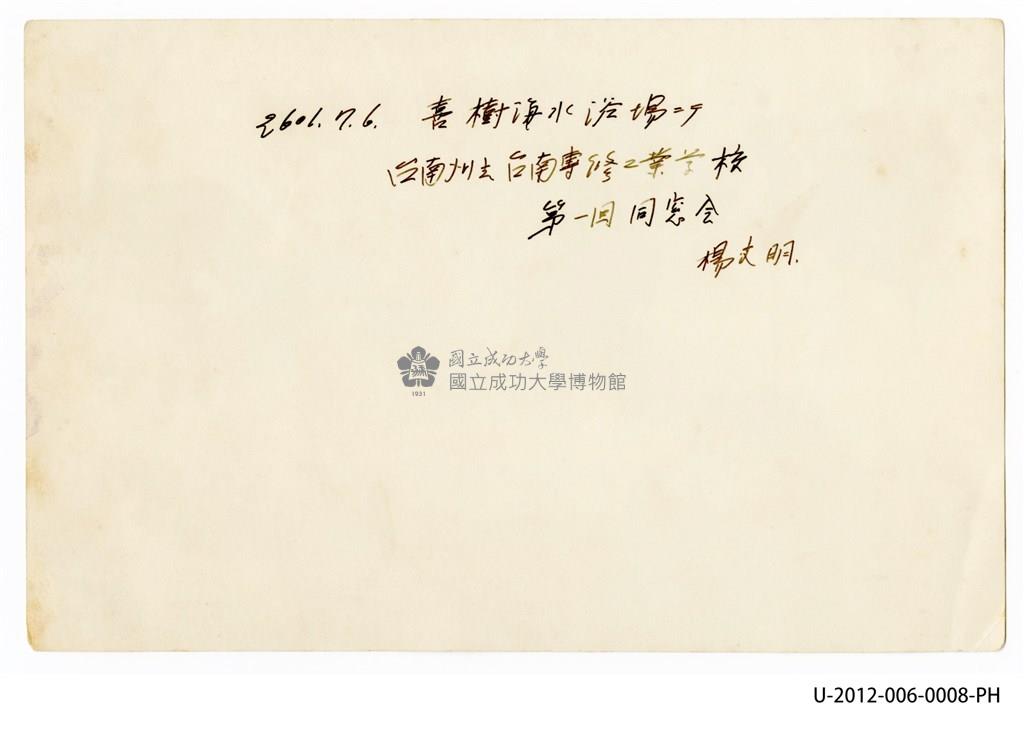 2601.7.6. 喜樹海水浴場ニテ
台南州立台南専修工業学校
第一回同窓会
楊文明.
國立成功大學
國立成功大學博物館
1931
U-2012-006-0008-PH